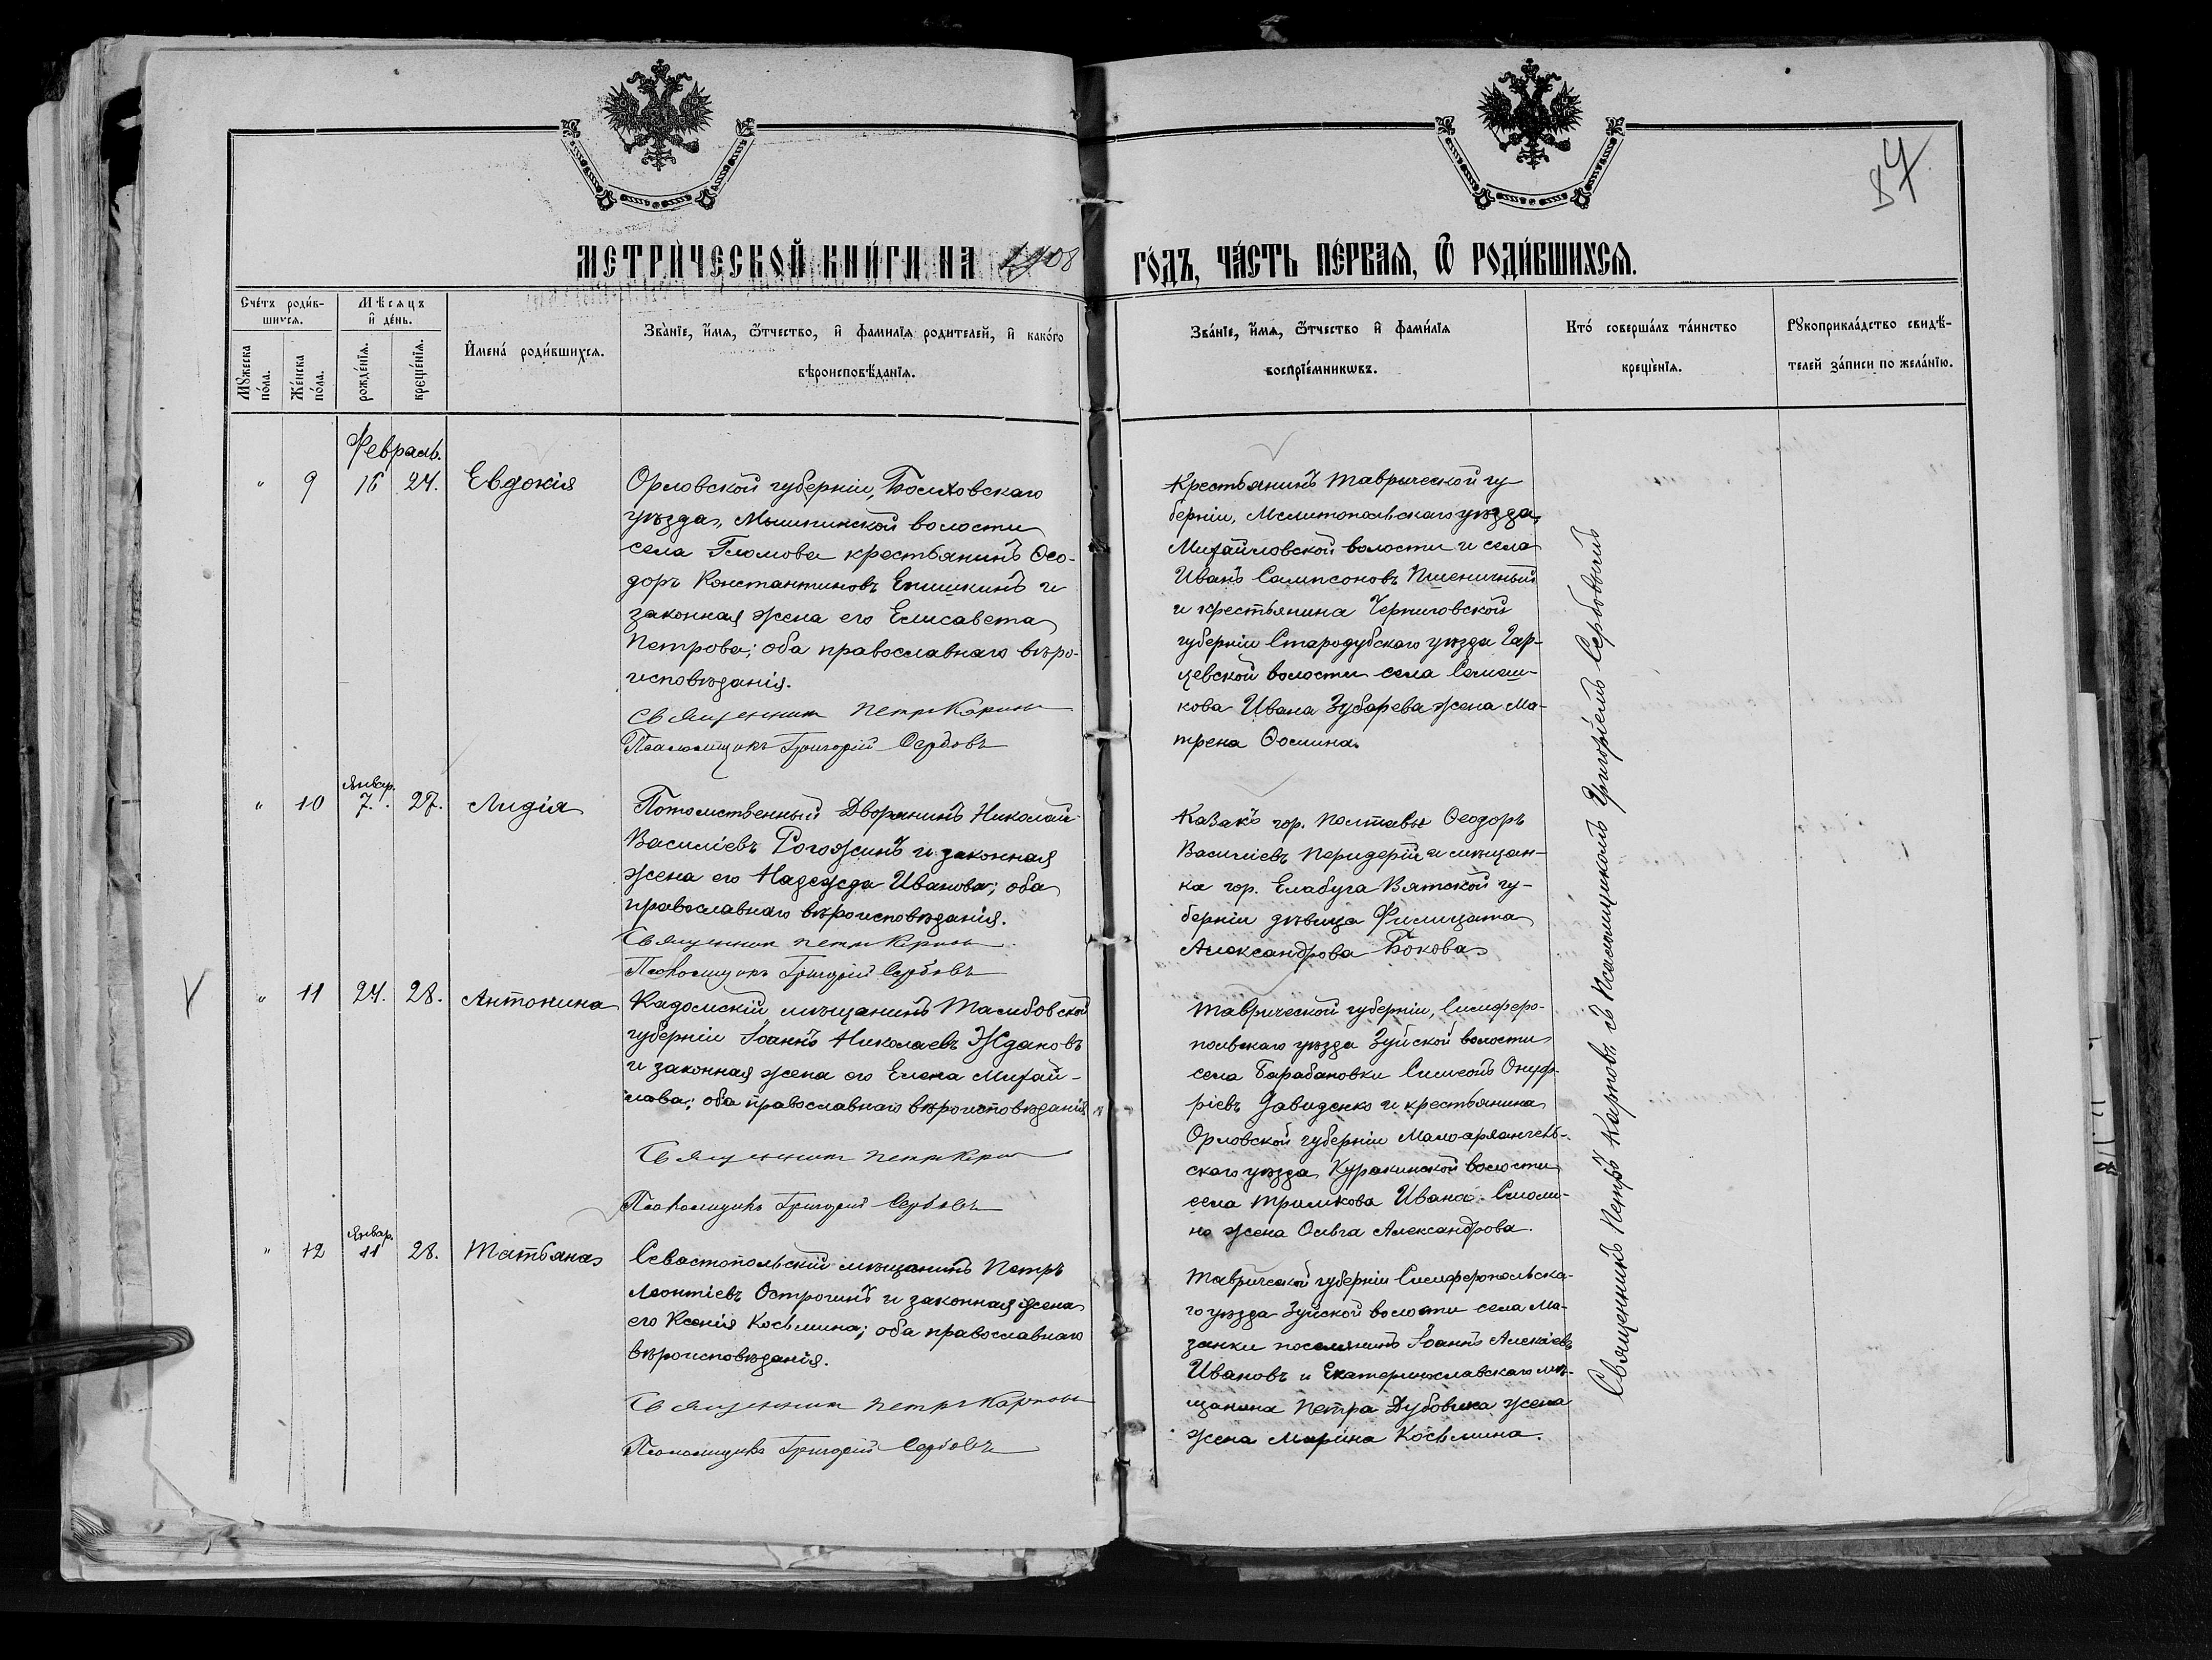 87
МЕТРИ́ЧЕСКОЙ КНИ́ГИ НА 1908
ГО́ДЪ, ЧА́СТЬ ПЕ́РВАѦ, Ѡ҃ РОДИ́ВШИХСѦ.
Сче́тъ роди́в-
шихся.
Мѣ́сяцъ
и҆ де́нь.
Мꙋжеска по́ла.
Же́нска по́ла.
рожде́нїя.
креще́нїя.
И҆мена́ роди́вшихся.
Зва́нїе, и҆́мя, ѻ҆́тчество, и҆ фами́лїя родителей, и҆ како́го
вѣроисповѣ́данїя.
Зва́нїе, и҆́мя, ѻ҆́тчество и҆ фами́лїя
воспрїе́мникѡвъ.
Кто́ соверша́лъ та́инство
креще́нїя.
Рꙋкоприкла́дство свидѣ́-
телей за́писи по жела́нїю.
Февраль.
" 9 16 24. Евдокія
Орловской губерніи, Болховскаго
уѣзда,
волости
села крестьянинъ Ѳео-
доръ Константиновъ Епишкинъ и
законная жена его Елисавета
Петрова; оба православнаго вѣро-
исповѣданія.
Священник Петр Карпов
Псаломщикъ Григорій Сербовъ
Крестьянинъ Таврической гу
берніи, Мелитопольскаго уѣзда,
Михайловской волости и села
Иванъ Сампсоновъ Пшеничный
и крестьянина Черниговской
губерніи Стародубскаго уѣзда Гар-
цевской волости села Семеш-
кова Ивана Зубарева жена Ма-
трена Ѳомина.
" 10 Январ. 7. 27. Лидія
Потомственный Дворянинъ Николай
Василіевъ Рогожинъ и законная
жена его Надежда Иванова; оба
православнаго вѣроисповѣданія.
Священник Петр Карпов
Псаломщикъ Григорій Сербовъ
Казакъ гор. Полтавы Ѳеодоръ
Василіевъ Перидерій и мѣщан-
ка гор. Елабуга Вятской гу-
берніи дѣвица Филицата
Александрова Бокова
" 11 24. 28. Антонина
Кадомскій мѣщанинъ Тамбовской
губерніи Іоаннъ Николаевъ Ждановъ
и законная жена его Елена Михай-
лова; оба православнаго вѣроисповѣданія
Священник Петр Карпов
Псаломщикъ Григорій Сербовъ
Таврической губерніи, Симферо-
польскаго уѣзда Зуйской волости
села Барабановки Симеонъ Онуф-
ріевъ Давиденко и крестьянина
Орловской губерніи Малоархангель-
скаго уѣзда, Куракинской волости
села Ивана Смоли-
на жена Ольга Александрова.
" 12 Январ. 11 28. Татьяна
Севастопольскій мѣщанинъ Петръ
Леонтіевъ Острогинъ и законная жена
его Ксенія Косьмина; оба православнаго
вѣроисповѣданія.
Священник Петр Карпов
Псаломщикъ Григорій Сербовъ
Таврической губерніи Симферопольска-
го уѣзда Зуйской волости села Ма-
занки поселянинъ Іоаннъ Алексіевъ
Ивановъ и Екатеринославскаго мѣ-
щанина Петра Дубовика жена
жена Марина Косьмина.
Священникъ Петръ Карповъ съ Псаломщикомъ Григоріемъ Сербовымъ